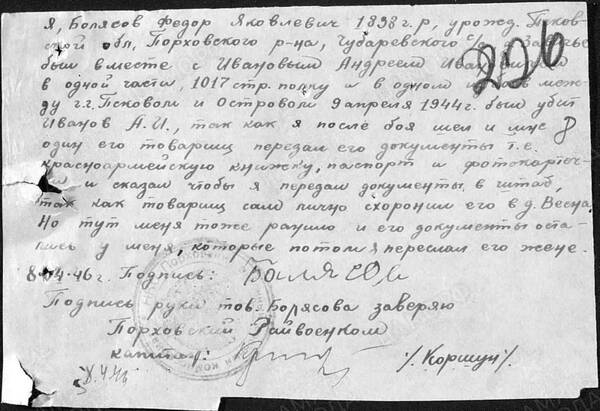 Я, Болясов Федор Яковлевич 1898 г.р, урожд. Псков
ской обл, Порховского р-на, Чубаревского с/с
был вместе с Ивановым Андреем
226
в одной части, 1017 стр. полку и в одном меж-
ду г.г. Псковом и Островом 9 апреля 1944г. был убит
Иванов А.И., так как я после боя шел и мне
один его товарищ передал его документы т.е.
красноармейскую книжку, паспорт и фотокарточ-
и сказал чтобы я передал документы, в штаб,
так как товарищ сам лично схоронил его в д. Весна
Но тут меня тоже ранило и его документы оста-
лись у меня, которые потом я переслал его жене.
8-04-46г. Подпись:
Подпись руки тов. Болясова заверяю
Порховский Райвоенком
капитан: /. Коршун/.